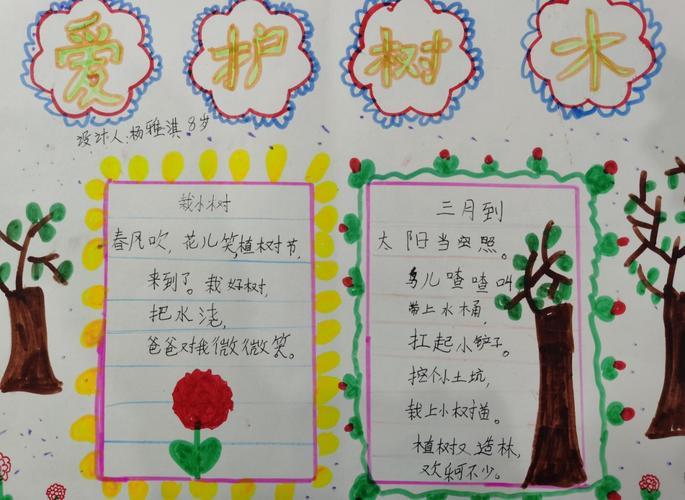 爱护树木
设计人:杨雅淇 8岁
栽小树
春风吹,花儿笑,植树节,
来到了。栽好树,
把水浇,
爸爸对我微微笑。
三月到
太阳当空照。
鸟儿喳喳叫
带上水桶,
扛起小铲子。
挖个小土坑,
栽上小树苗。
植树又造林,
欢乐可不少。